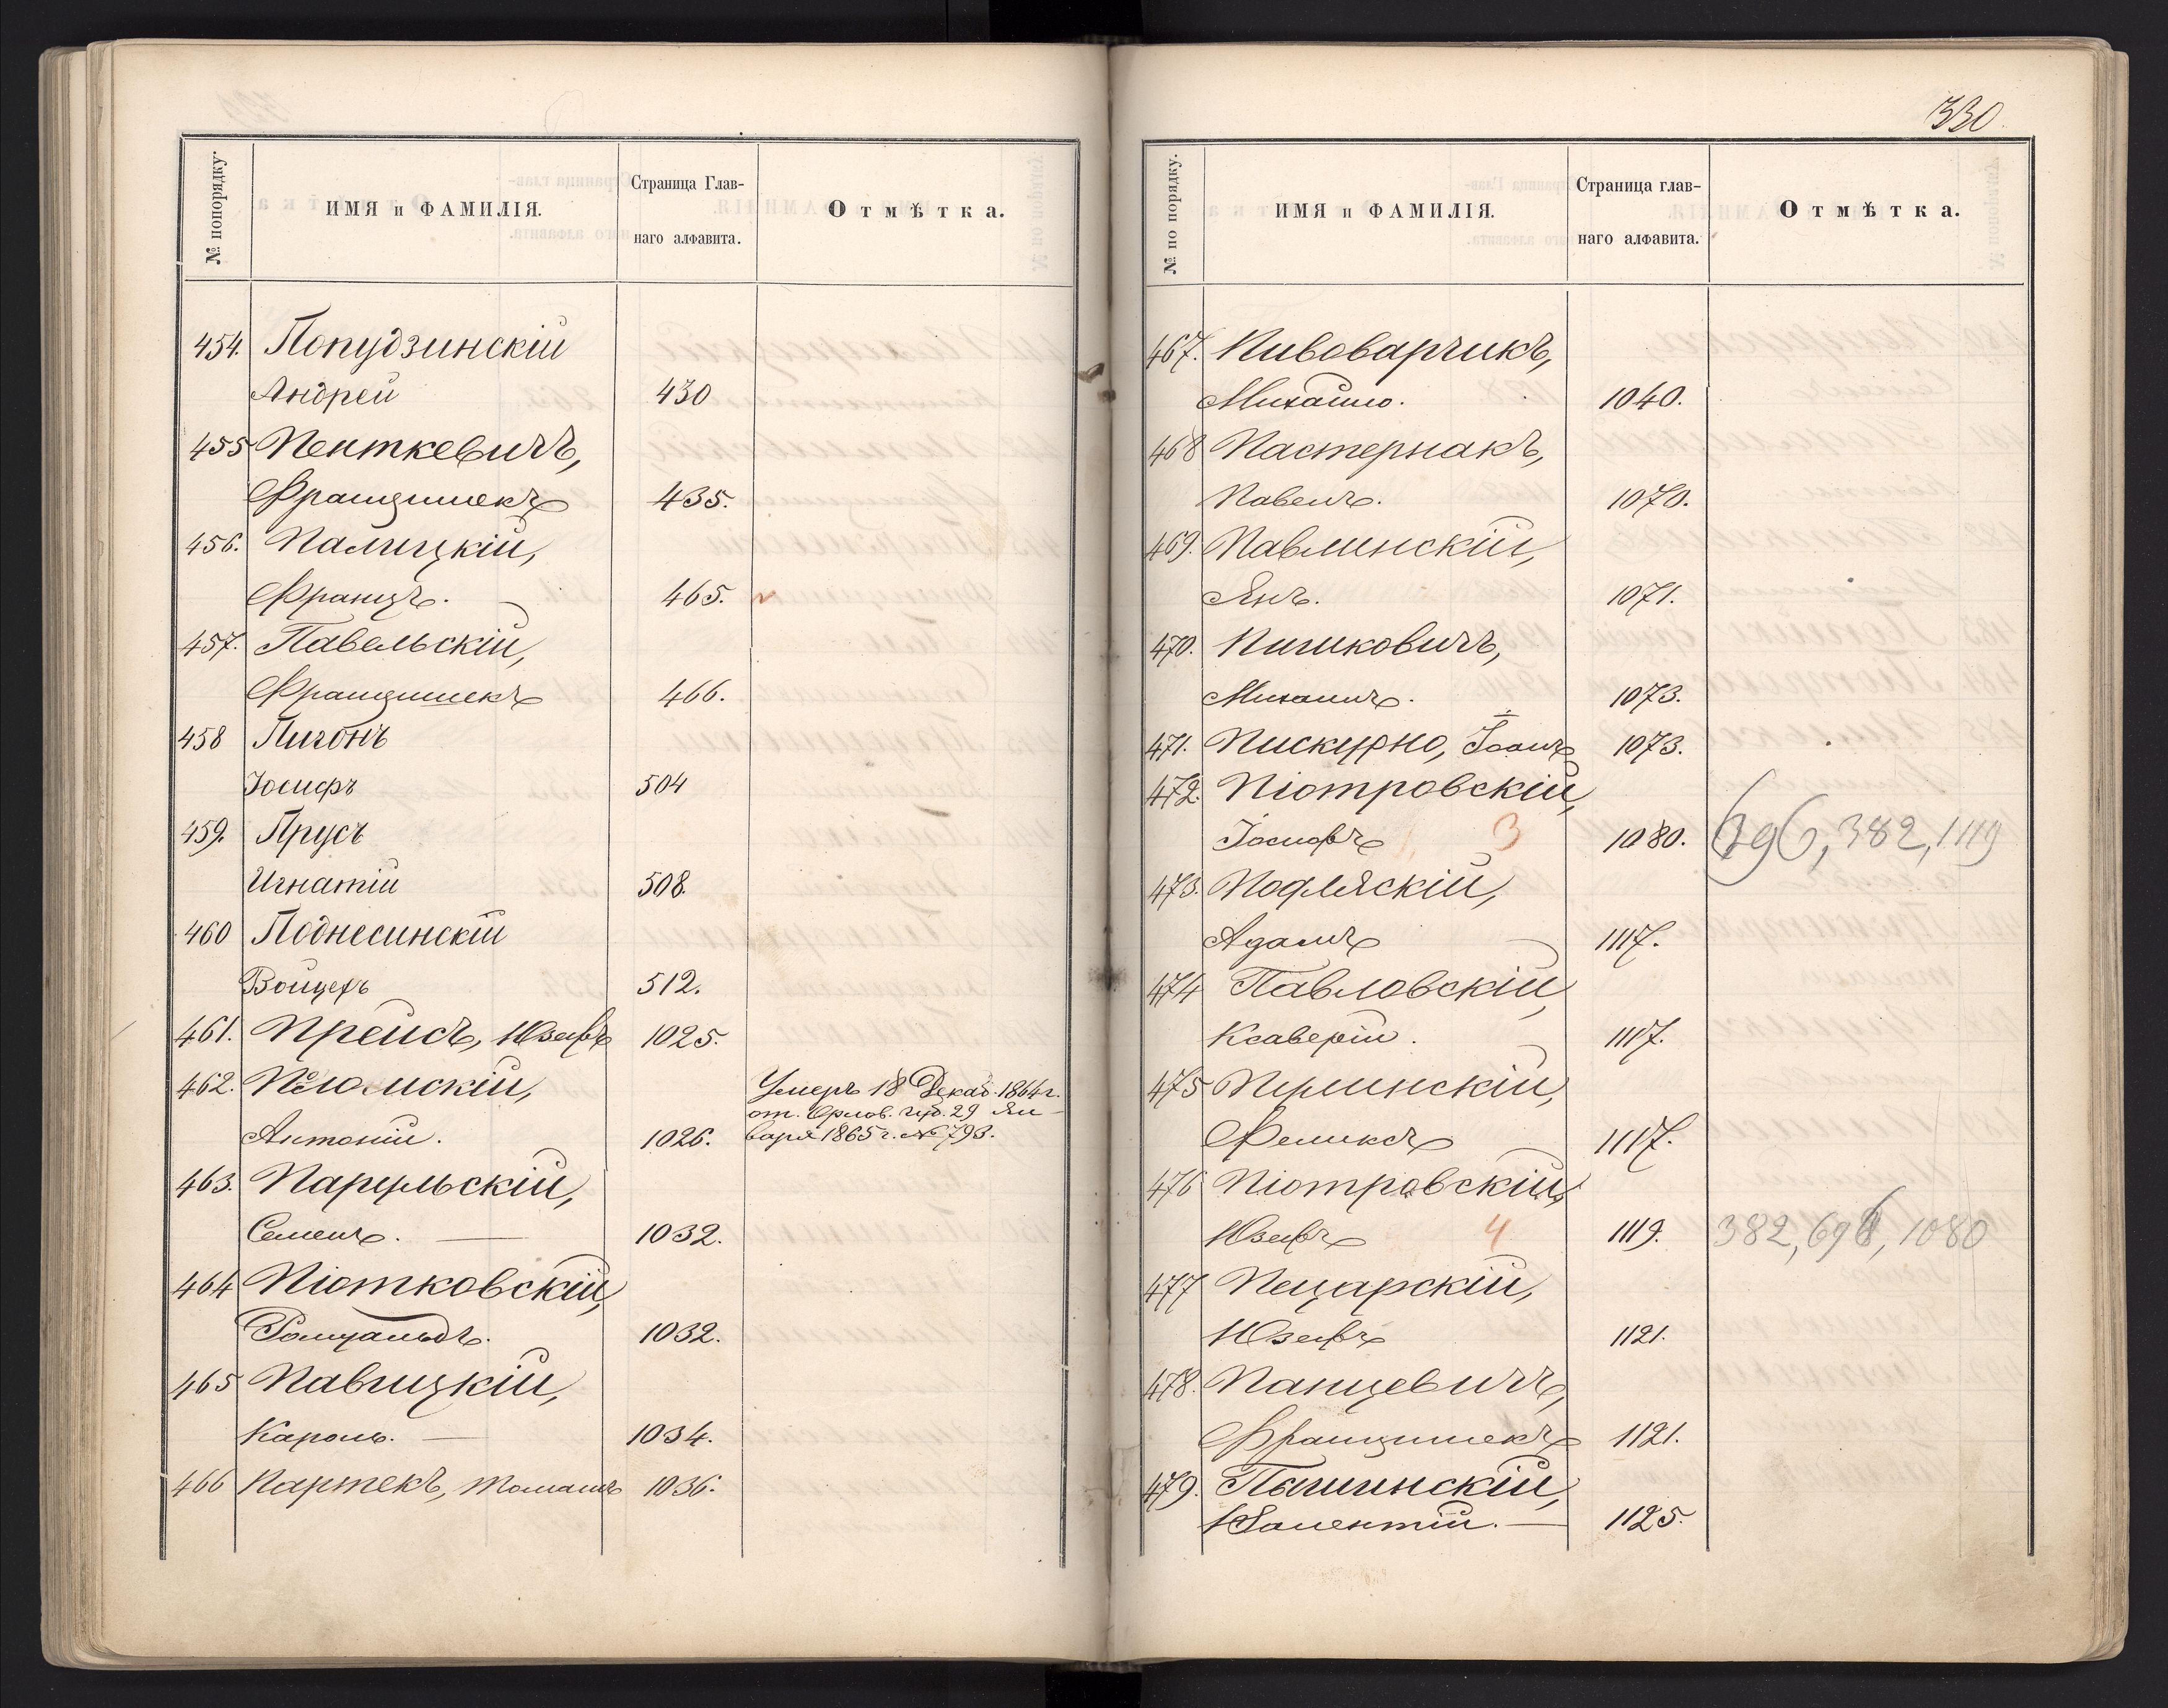 № попорядку.
ИМЯ и ФАМИЛІЯ.
Страница Глав-
наго алфавита.
Отмѣтка.
454. Попудзинскій
Андрей 430
455 Пенткевичъ,
Францишекъ 435.
456. Палицкій,
Францъ. 465.
457. Павельскій,
Францишекъ 466.
458 Пигонъ
Іосифъ 504
459. Прусъ
Игнатій 508.
460 Поднесинскій
Войцехъ 512.
461. Прейсъ, Юзефъ 1025.
462. Поломскій,
Умеръ 18 Декаб. 1864 г.
от. Орлов. губ. 29 Ян-
Антоній. 1026. варя 1865 г. № 793.
463. Парульскій,
Семенъ. — 1032.
464 Піотковскій,
Ромуальдъ. 1032.
465 Павицкій,
Кароль. — 1034.
466 Партекъ, Томашъ 1036.
330
№ по порядку.
ИМЯ и ФАМИЛІЯ.
Страница глав-
наго алфавита.
Отмѣтка.
467. Пивоварчикъ,
Михайло. 1040.
468 Пастернакъ,
Павелъ. 1070.
469. Павлинскій,
Янъ. 1071.
470. Пишковичъ,
Михаилъ. 1073.
471. Пискурно, Іоанъ 1073.
472. Піотровскій,
Іосифъ 3 1080. 696, 382, 1119
473.Подляскій,
Адамъ 1117.
474 Павловскій,
Ксаверій. 1117.
475 Перлинскій,
Феликсъ 1117.
476 Піотровскій,
Юзефъ 4 1119. 382, 696, 1080
477 Пецарскій,
Юзефъ 1121.
478. Панцевичъ,
Францишекъ 1121.
479. 
Валентій. — 1125.